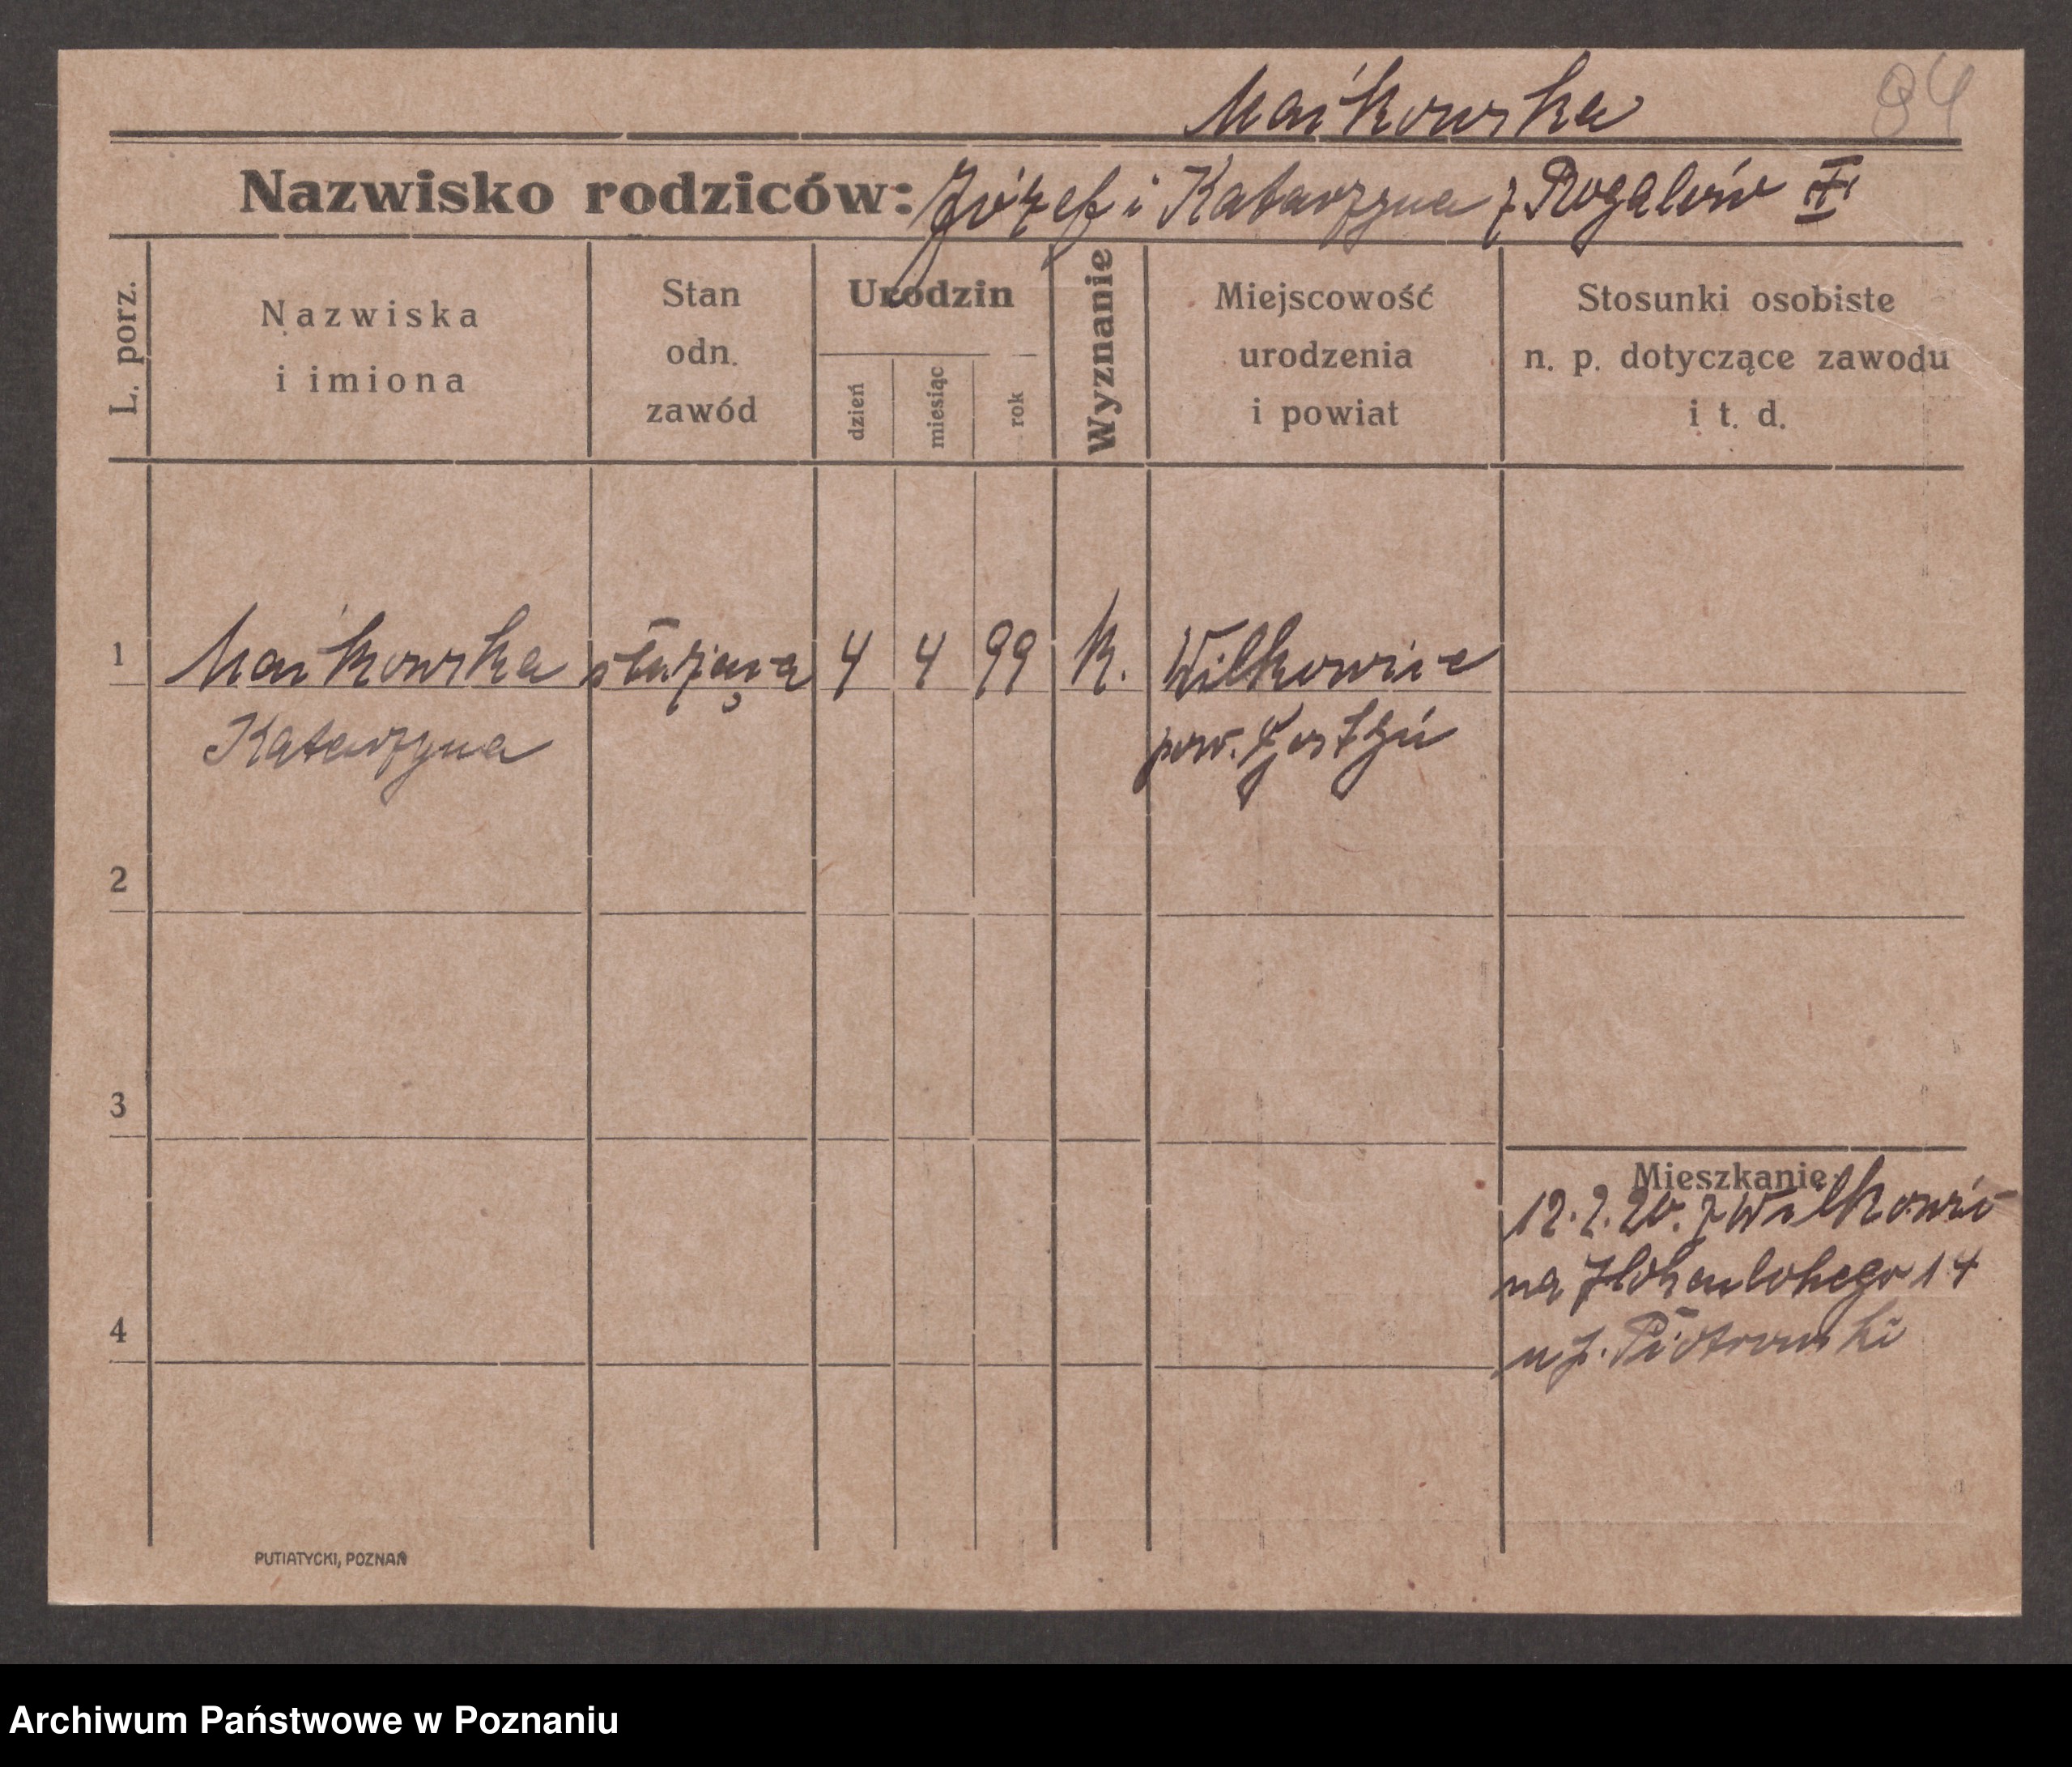 Maćkowska 94
Nazwisko rodziców: Józef i Katarzyna z Rogalów II
L. porz.
Nazwiska
i imiona
Stan
odn.
zawód
Urodzin
dzień
miesiąc
rok
Wyznanie
Miejscowość
urodzenia
i powiat
Stosunki osobiste
n. p. dotyczące zawodu
i t. d.
1 Maćkowska służąca 4 4 99 K. Wilkowice
Katarzyna pow. Gostyń
2
3
Mieszkanie
12. 2. 20. z Wilkowic
na Hohenlohego 14
4
u J. Piotrowski
PUTIATYCKI, POZNAŃ
Archiwum Państwowe w Poznaniu